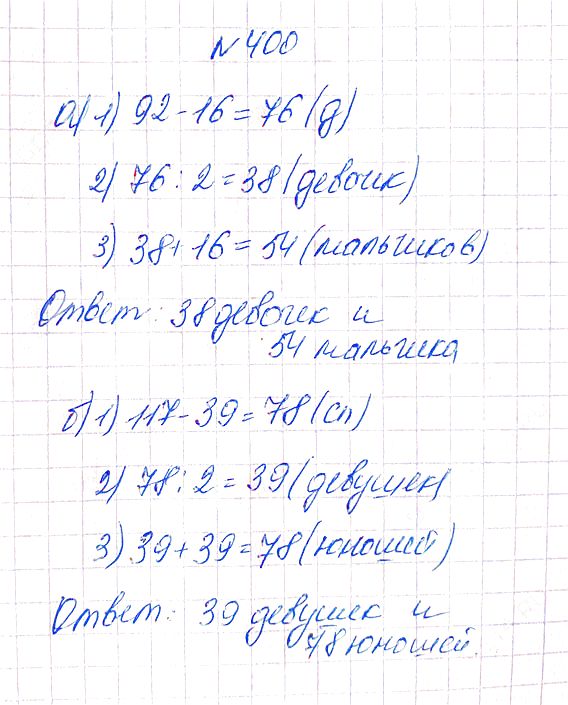 N 400
а) 1) 92 - 16 = 76 (д)
2) 76 : 2 = 38 (девочек)
3) 38 + 16 = 54 (мальчиков)
Ответ: 38 девочек и
54 мальчика
б) 1) 117 - 39 = 78 (сп)
2) 78 : 2 = 39 (девушек)
3) 39 + 39 = 78 (юношей)
Ответ: 39 девушек и
78 юношей.